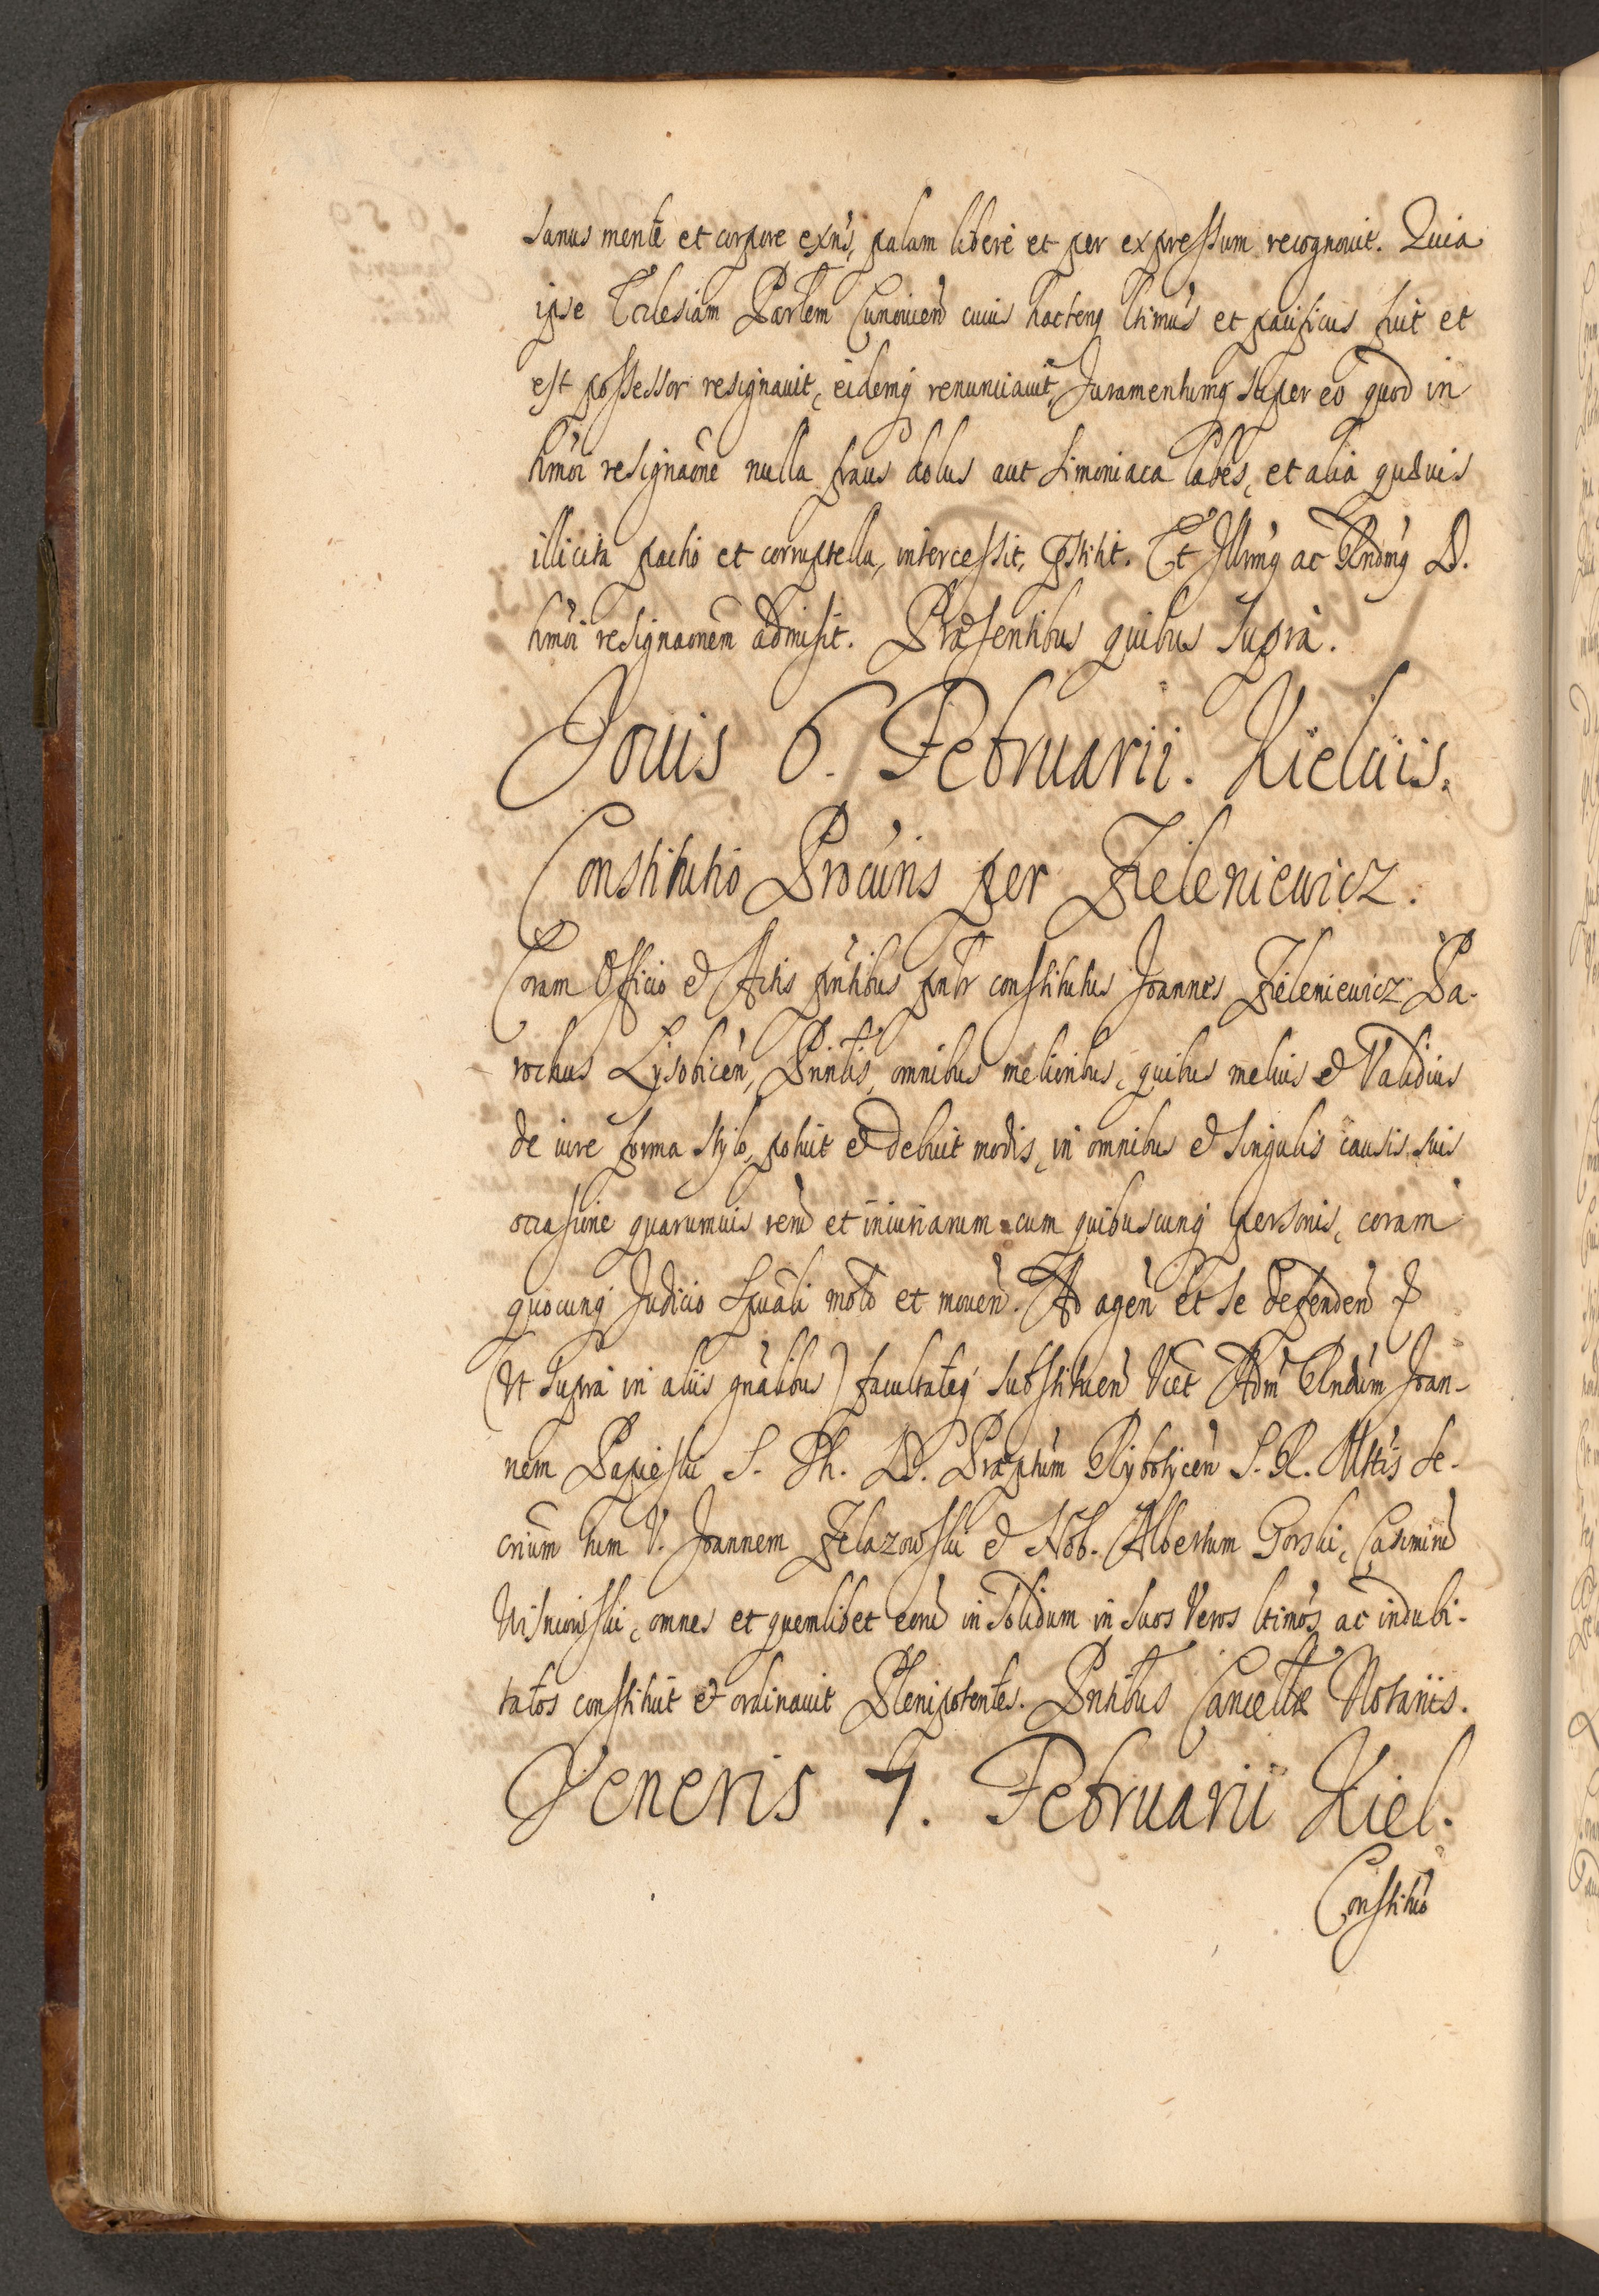 sanus mente et corpore exñs, palam liberè et per expressum recognouit. Quia
ipse Ecclesiam Parłem Cunouien̄ cuius hactenq ltimus et pacificus fuit et
est possessor resignauit, eidemq renunciauit, Juramentumq super eo quod in
hmõi resignaõne nulla fraus dolus aut simoniaca labes, et alia quæuis
illicita pactio et corruptella, intercessit, pstitit. Et Illrmq ac Rndmq D.
hmõi resignaonem admisit. Præsentibus quibus supra.
Jouis 6. Februarii. Kielciis.
Constitutio Procuris per Zieleniewicz.
Coram Officio & Actis pñtibus pnłr constitutus Joannes Zieleniewicz Pa-
rochus Lysobicen̄, Prinłis, omnibus melioribus, quibus melius & Validius
de iure forma stylo, potuit & debuit modis, in omnibus & singulis causis suis
occasione quarumuis reru et iniuriarum cum quibuscunq personis, coram
quocunq Judicio Spuãli moto et mouen̄. Ad agen̄ et se defenden̄ &
(Vt supra in aliis gnãlibus) facultateq substituen̄ Vict Adm Rndum Joan-
nem Papieski S. Th. D. Præptum Rybotycen̄ S. R. Mttis Se-
crium tum V. Joannem Zelazowski & Nob. Albertum Gorski, Casimiru
Wisniowski, omnes et quemlibet eoru in solidum in suos Veros ltimos ac indubi-
tatos constituit & ordinauit Plenipotentes. Pntibus Cancellæ Notariis.
Veneris 7. Februarii Kiel.
Constituõ